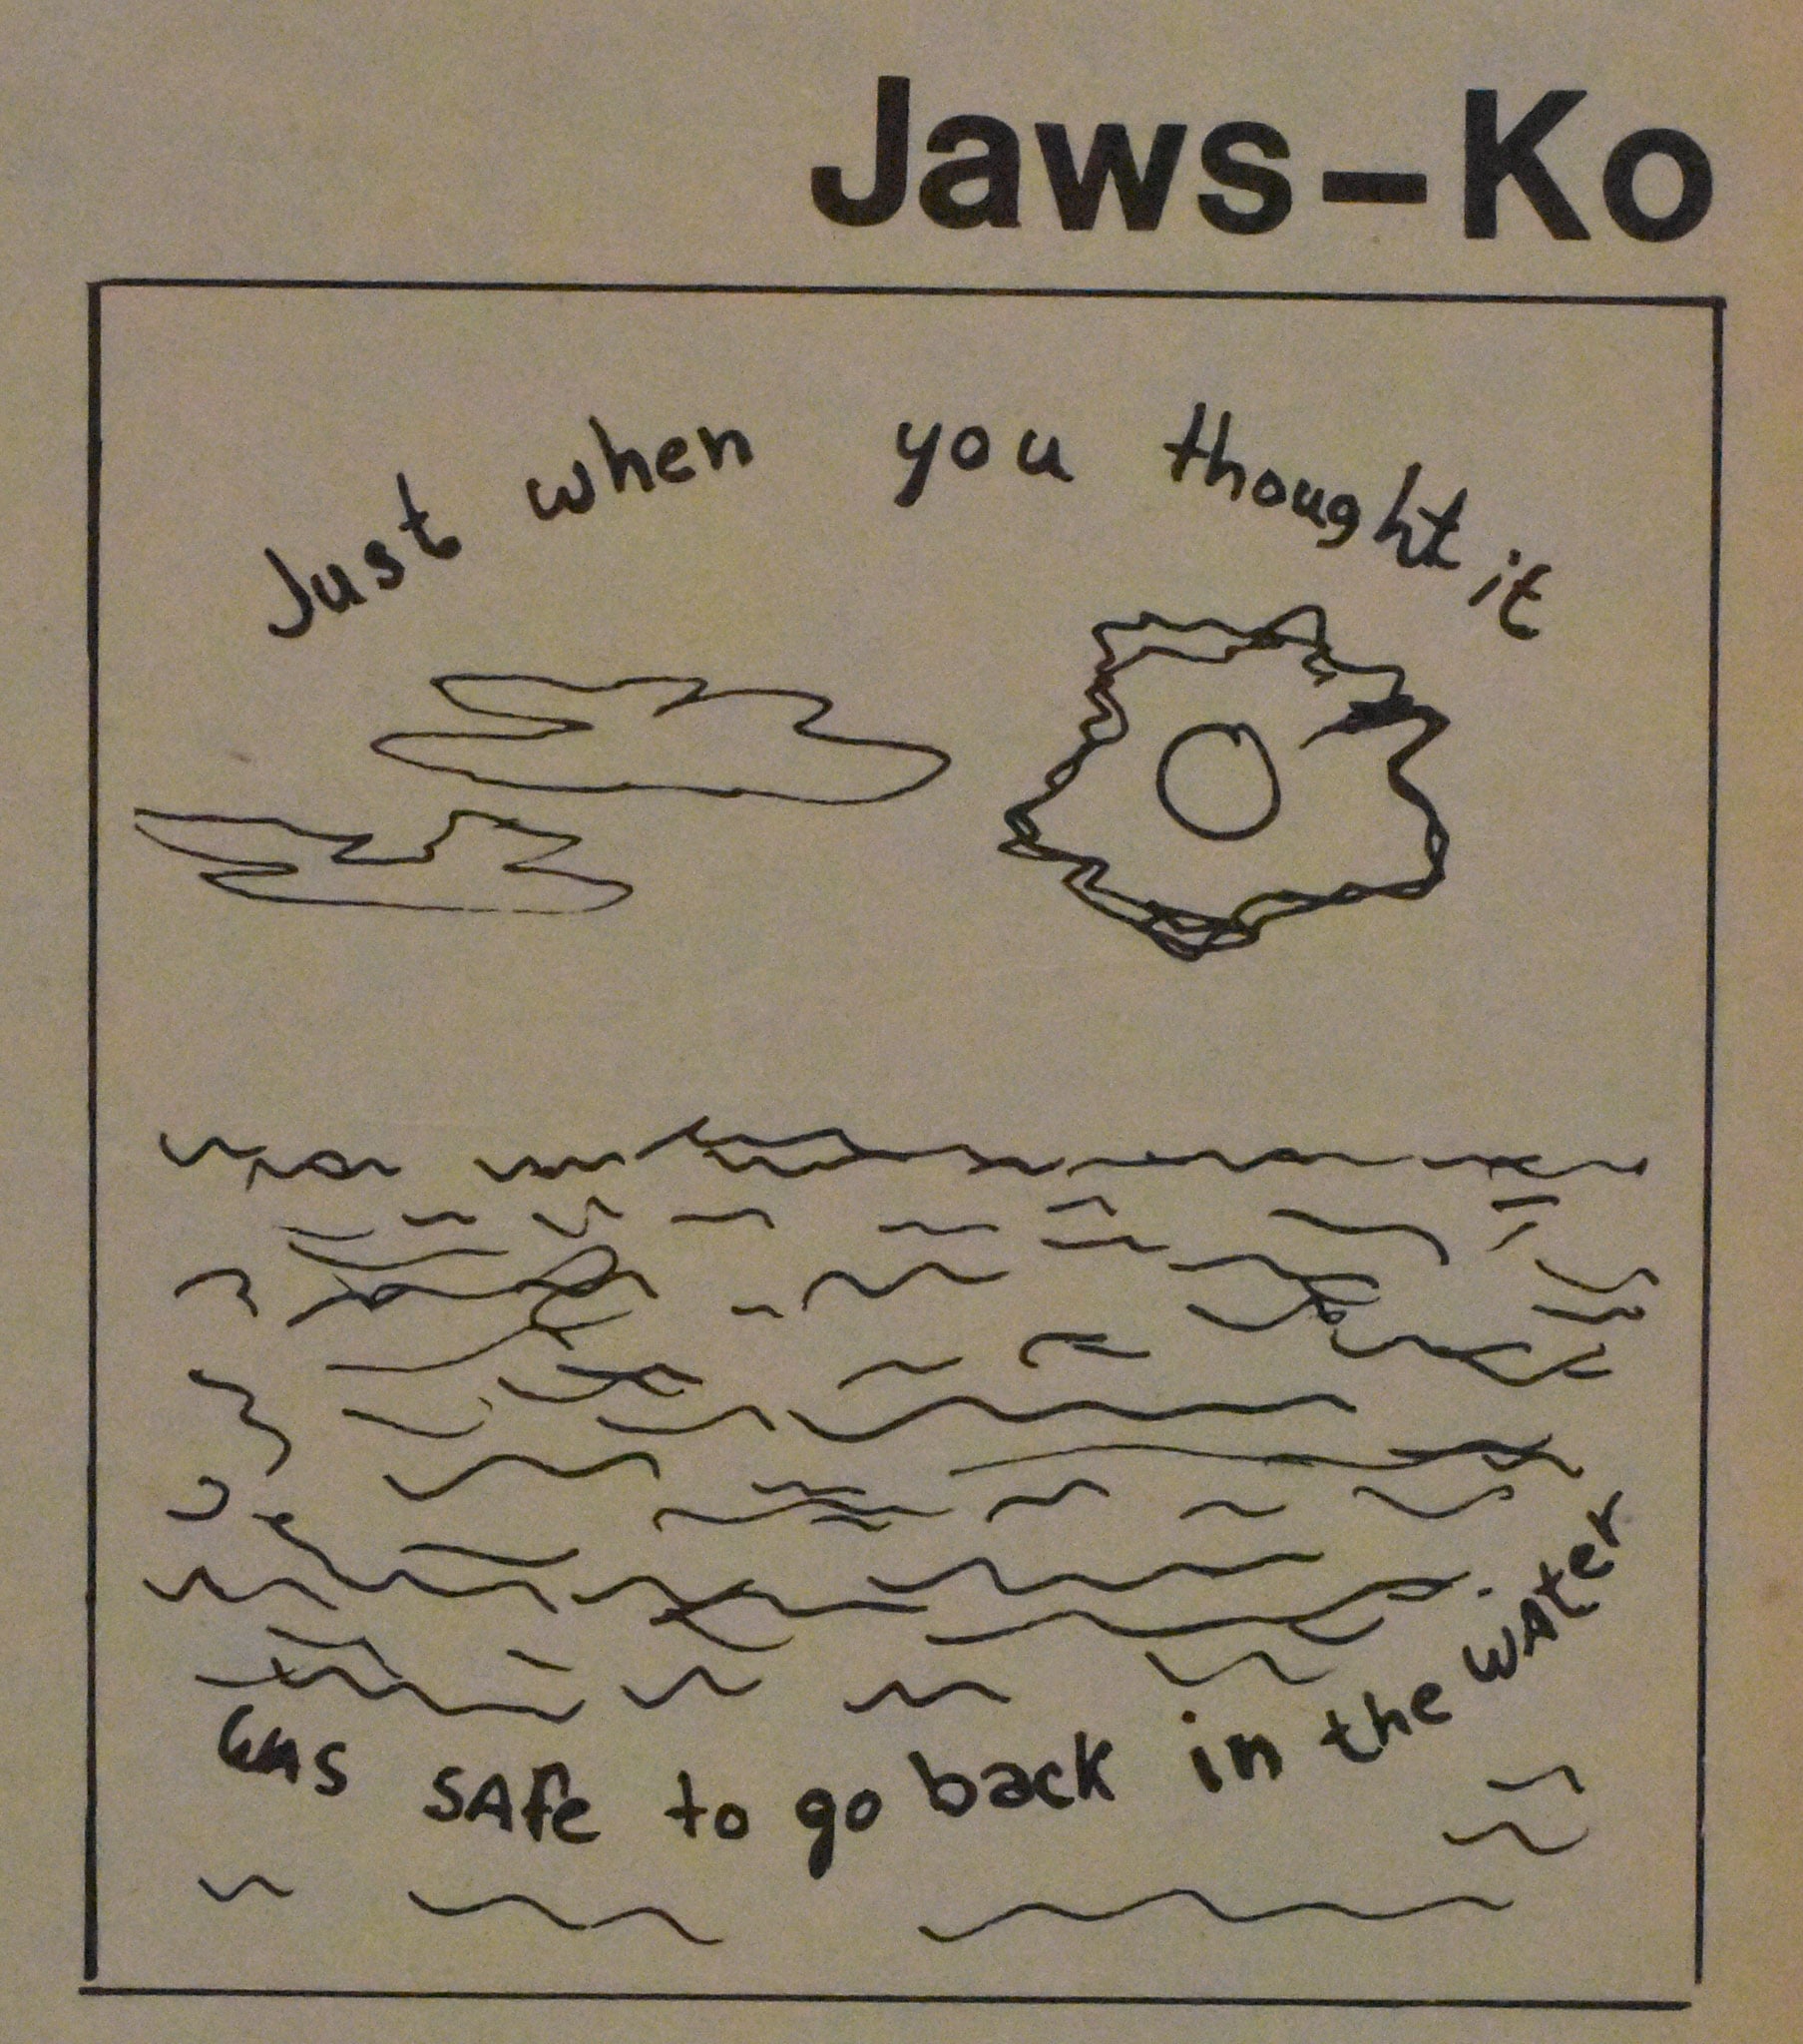 Jaws-Ko
Just when you thought it
was safe to go back in the water